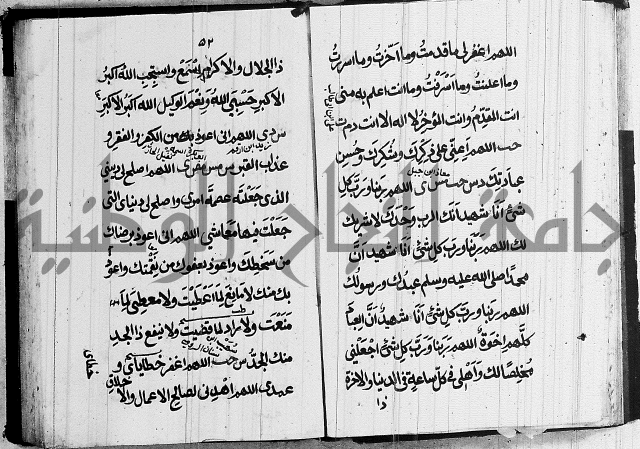 اللهم اغفر لي ما قدمت وما اخرت وما اسررت
وما اعلنت وما اسرفت وما انت اعلم به مني
انت المقدم وانت المؤخر لا اله الا انت د م ت
حب اللهم اعني على ذكرك وشكرك وحسن
عبادتك د س حب اللهم ربنا ورب كل
شئ انا شهيد انك الرب وحدك لا شريك
لك اللهم ربنا ورب كل شئ انا شهيد ان
محمدا صلى الله عليه وسلم عبدك ورسولك
اللهم ربنا ورب كل شئ انا شهيد ان العباد
كلهم اخوة اللهم ربنا ورب كل شئ اجعلني
مخلصا لك واهلي في كل ساعة في الدنيا والاخرة
ذا
٥٢
ذا الجلال والاكرام اسمع واستجب الله اكبر
الاكبر حسبي الله ونعم الوكيل الله اكبر الاكبر
س د ي اللهم اني اعوذ بك من الكفر والفقر و
عذاب القبر س مس اللهم اصلح لي ديني
الذي جعلته عصمة امري واصلح لي دنياي التي
جعلت فيها معاشي اللهم اني اعوذ برضاك
من سخطك واعوذ بعفوك من نقمتك واعوذ
بك منك لا مانع لما اعطيت ولا معطي لما
منعت ولا راد لما قضيت ولا ينفع ذا الجد
منك الجد س حب اللهم اغفر خطاياي و
عمدي اللهم اهدني لصالح الاعمال والاخلاق
خطاي
جامعة النجاح الوطنية